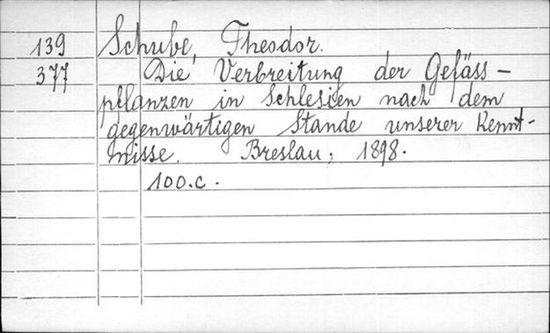 139 Schube, Theodor.
377 Die Verbreitung der Gefäss-
pflanzen in Schlesien nach dem
gegenwärtigen Stande unserer Kennt-
nisse. Breslau, 1898.
100.c.